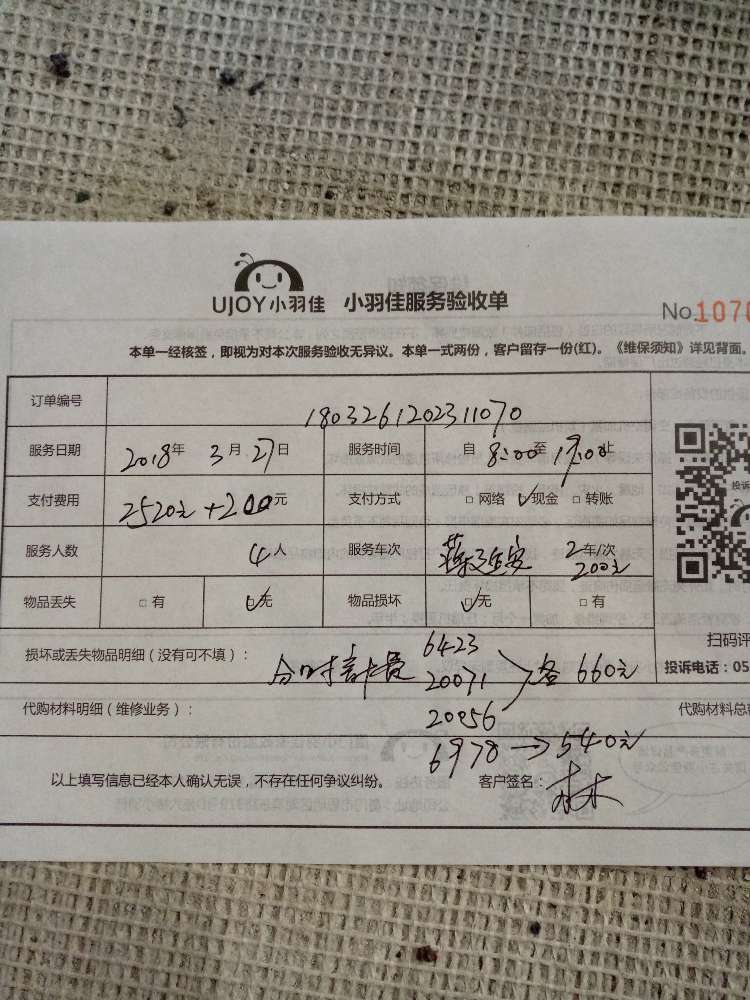 UJOY小羽佳 小羽佳服务验收单
No.1070
本单一经核签，即视为对本次服务验收无异议。本单一式两份，客户留存一份(红)。《维保须知》详见背面。
订单编号 1803261202311070
服务日期 2018年 3月27日 服务时间 自 8:00至19:00止
支付费用 2520元+200元 支付方式 □网络 ☑现金 □转账
投诉
服务人数 4人 服务车次 2车/次
200元
物品丢失 □有 ☑无 物品损坏 ☑无 □有
扫码评
损坏或丢失物品明细（没有可不填）： 6423
投诉电话：05
20071 各660元
代购材料明细（维修业务）： 20056 代购材料总
6978→540元
以上填写信息已经本人确认无误，不存在任何争议纠纷。 客户签名：